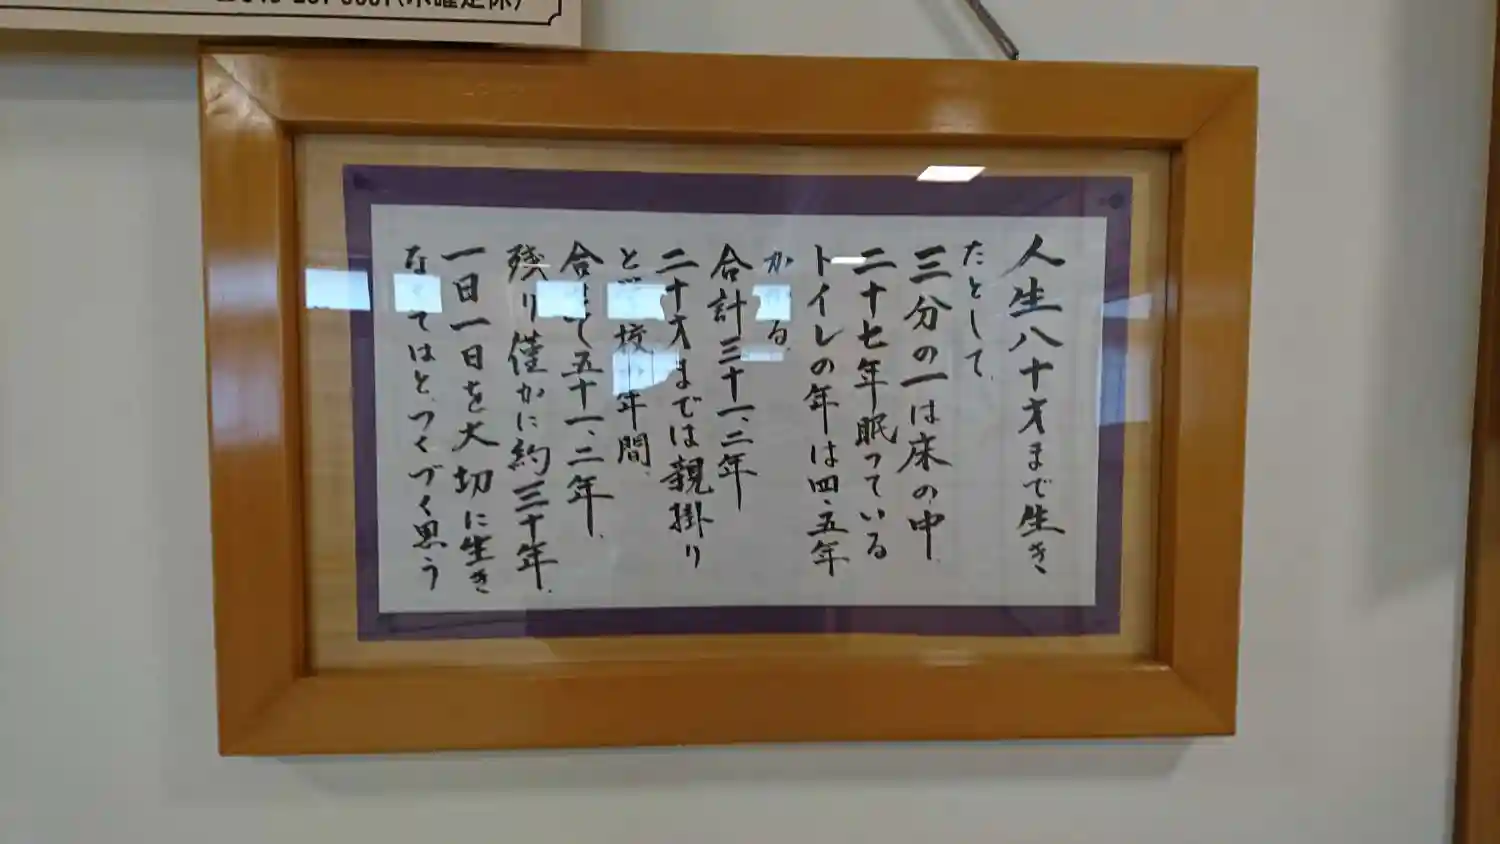 人生八十才まで生き
たとして
三分の一は床の中
二十七年眠っている
トイレの年は四、五年
かかる
合計三十一、二年
二十才までは親掛り
と学校の年間
合せて五十一、二年
残り僅かに約三十年
一日一日を大切に生き
なくてはと、つくづく思う
(木曜定休)